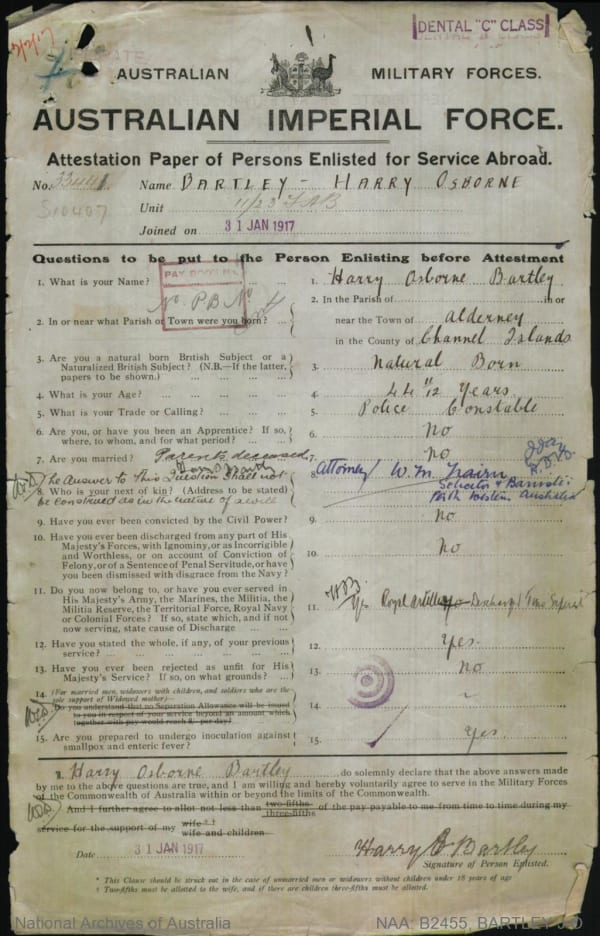 DENTAL "C" CLASS
AUSTRALIAN MILITARY FORCES.
AUSTRALIAN IMPERIAL FORCE.
Attestation Paper of Persons Enlisted for Service Abroad.
No. Name BARTLEY - HARRY OSBORNE
S10407 Unit 11/23 FAB
Joined on 31 JAN 1917
Questions to be put to the Person Enlisting before Attestment
1. What is your Name? 1. Harry Osborne Bartley
2. In or near what Parish or Town were you born? 2. In the Parish of in or
near the Town of Alderney
in the County of Channel Islands
3. Are you a natural born British Subject or a
Naturalized British Subject? (N.B.—If the latter,
papers to be shown.) 3. Natural Born
4. What is your Age? 4. 44 Years
5. What is your Trade or Calling? 5. Police Constable
6. Are you, or have you been an Apprentice? If so,
where, to whom, and for what period? 6. No
7. Are you married? Parents deceased 7. No
The Answer to This Question shall not
8. Who is your next of kin? (Address to be stated) 8. Attorney W. M. Nairn
be construed as in the nature of a will
Solicitor & Barrister
Perth Western Australia
9. Have you ever been convicted by the Civil Power? 9. No
10. Have you ever been discharged from any part of His
Majesty's Forces, with Ignominy, or as Incorrigible
and Worthless, or on account of Conviction of
Felony, or of a Sentence of Penal Servitude, or have
you been dismissed with disgrace from the Navy? 10. No
11. Do you now belong to, or have you ever served in
His Majesty's Army, the Marines, the Militia, the
Militia Reserve, the Territorial Force, Royal Navy
or Colonial Forces? If so, state which, and if not
now serving, state cause of Discharge 11. Yes Royal Artillery Discharged Time Expired
12. Have you stated the whole, if any, of your previous
service? 12. Yes.
13. Have you ever been rejected as unfit for His
Majesty's Service? If so, on what grounds? 13. No
14. (For married men, widowers with children, and soldiers who are the
sole support of Widowed mother)—
Do you understand that no Separation Allowance will be issued
to you in respect of your service beyond an amount which
together with pay would reach 8/- per day? 14.
15. Are you prepared to undergo inoculation against
smallpox and enteric fever? 15. Yes.
I, Harry Osborne Bartley do solemnly declare that the above answers made
by me to the above questions are true, and I am willing and hereby voluntarily agree to serve in the Military Forces
of the Commonwealth of Australia within or beyond the limits of the Commonwealth.
And I further agree to allot not less than two-fifths three-fifths of the pay payable to me from time to time during my
service for the support of my wife*† wife and children
Date 31 JAN 1917 Harry O Bartley
Signature of Person Enlisted.
* This Clause should be struck out in the case of unmarried men or widowers without children under 18 years of age
† Two-fifths must be allotted to the wife, and if there are children three-fifths must be allotted.
National Archives of Australia NAA: B2455, BARTLEY